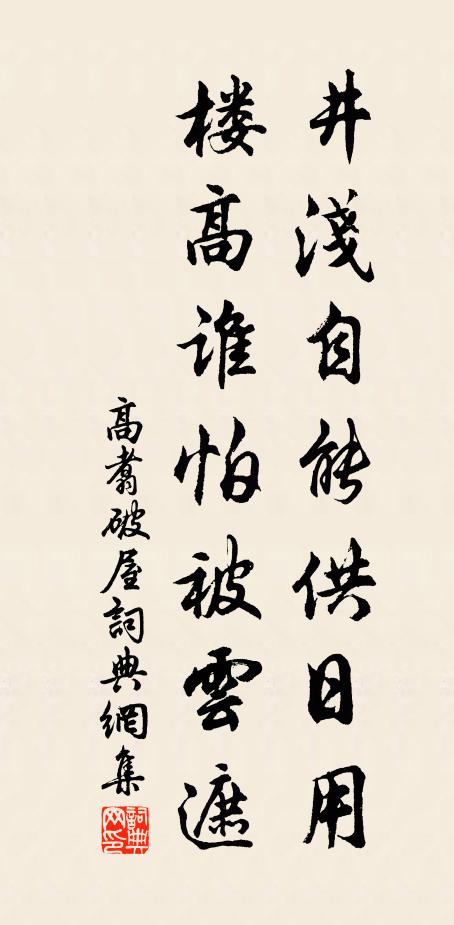 井淺自能供日用
楼高誰怕被雲遮
高翥破屋詞典網集
詞典網印